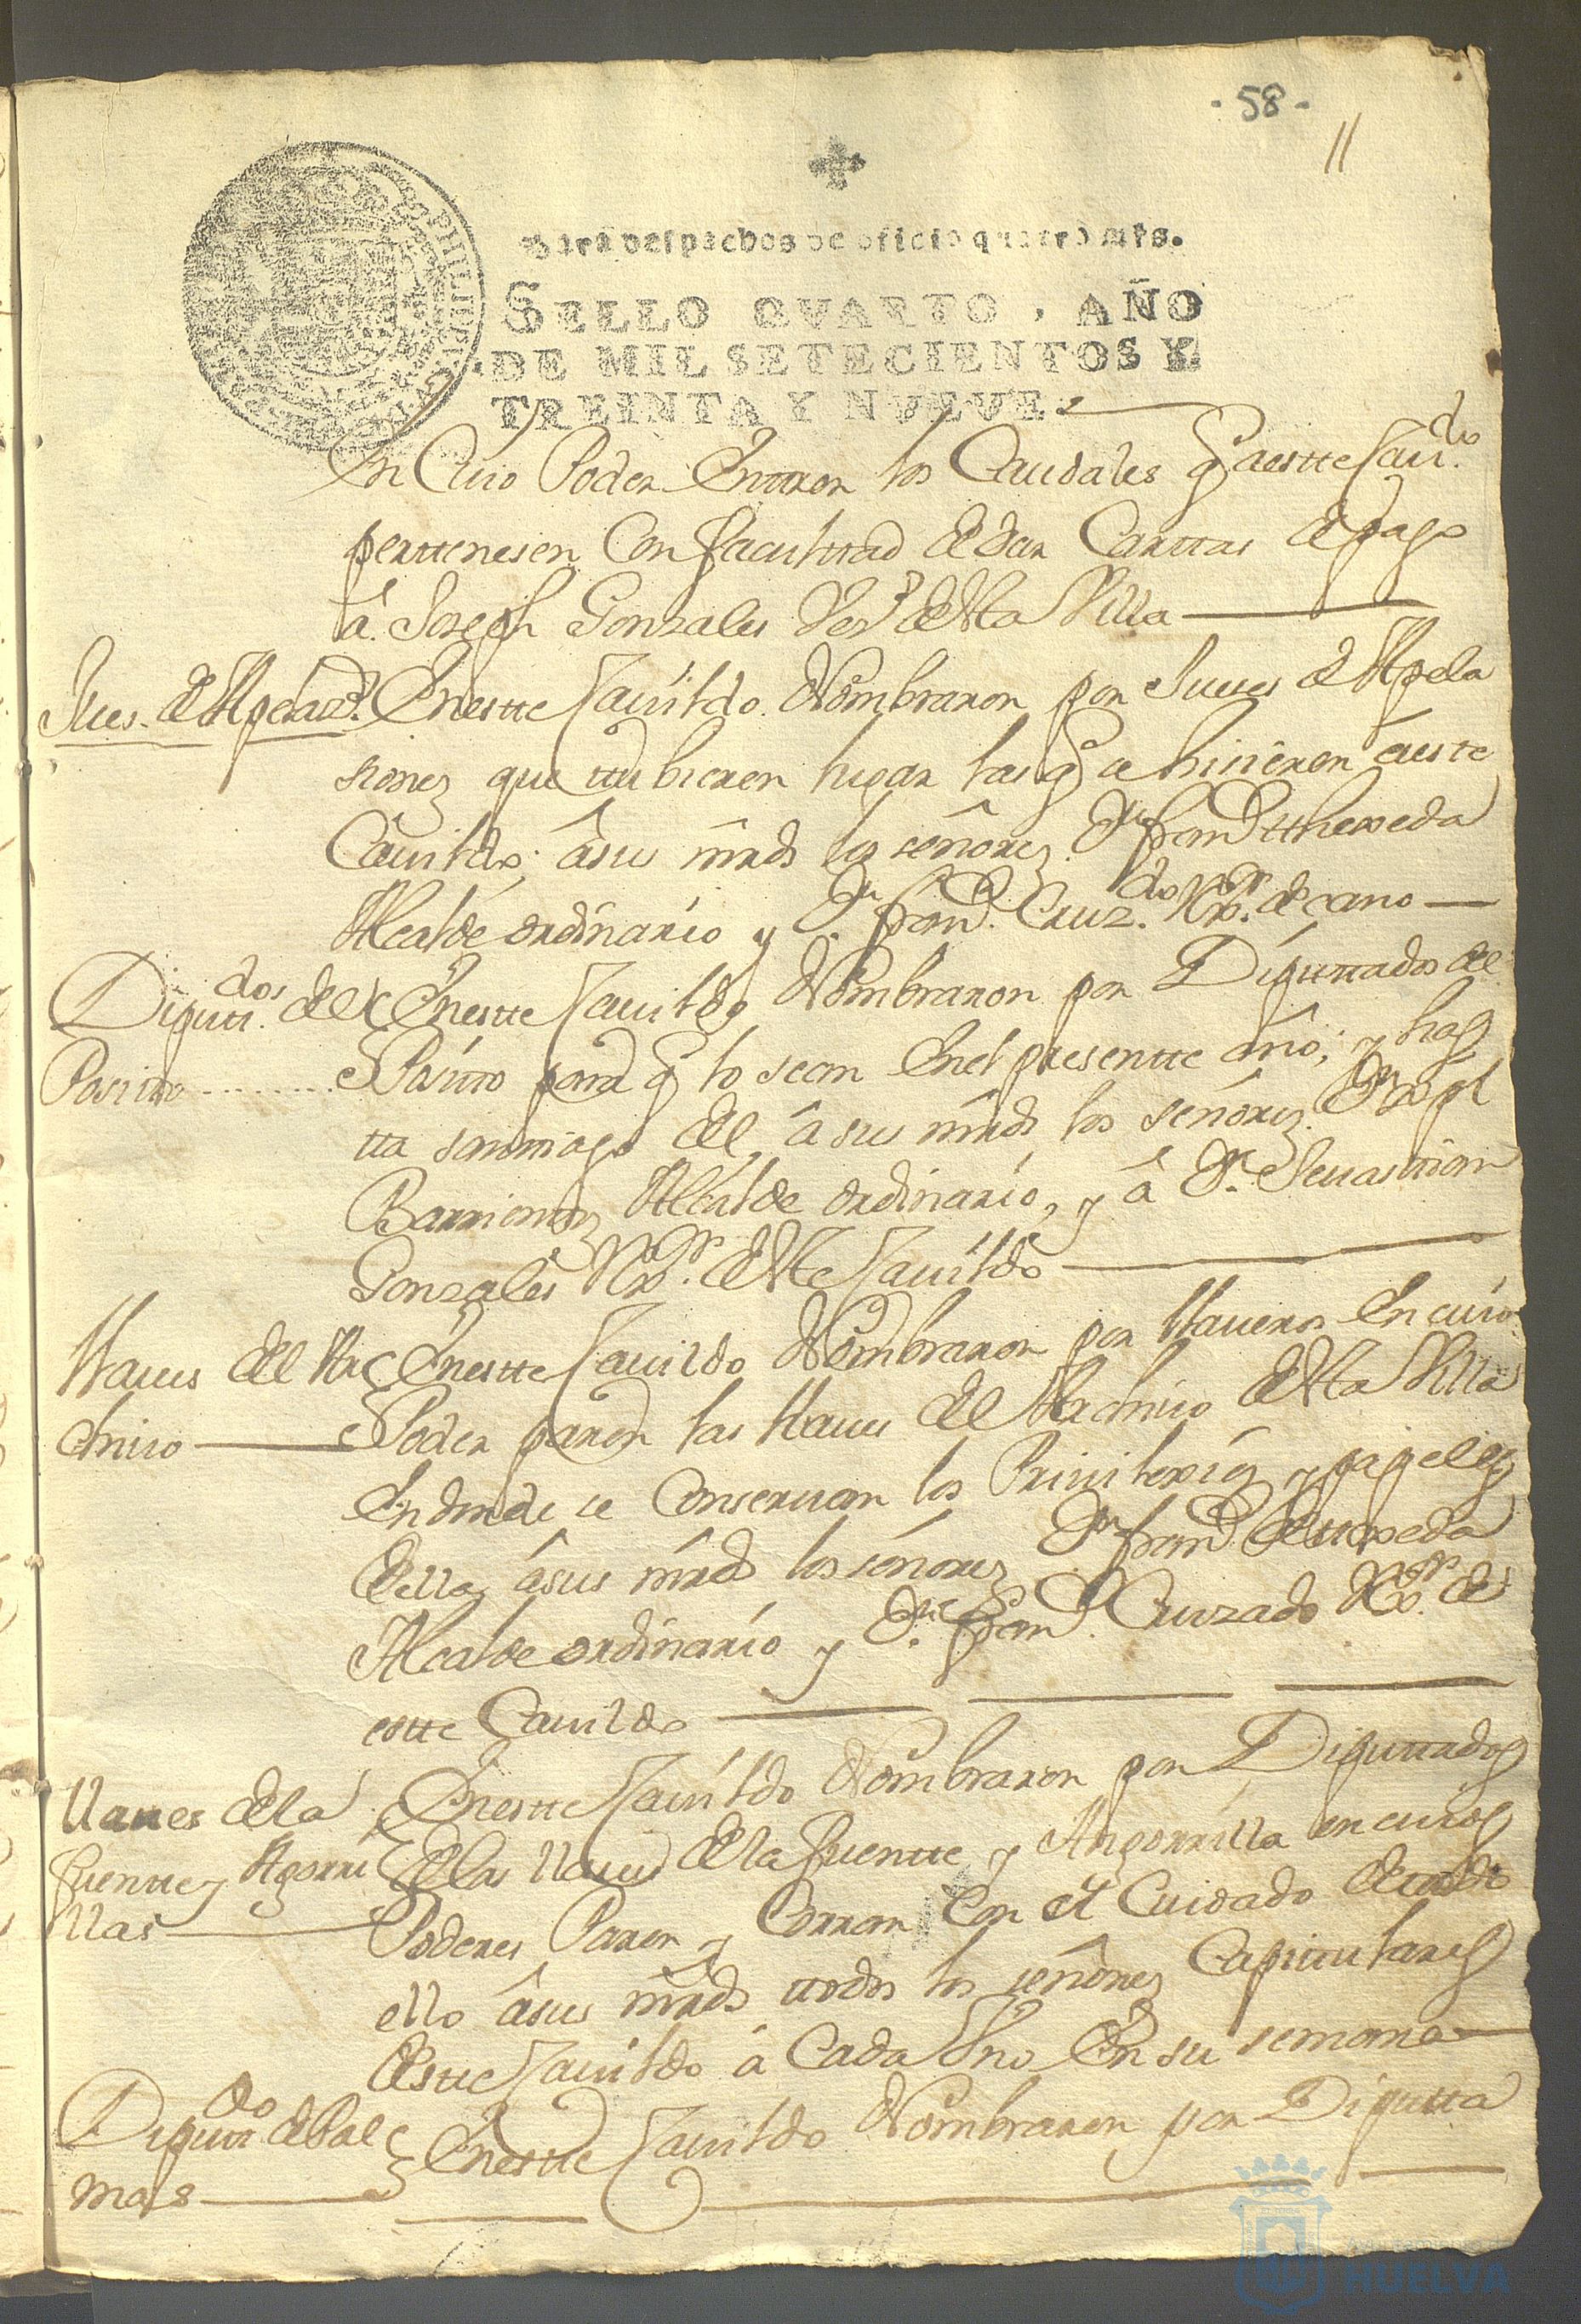 - 58 -
11
Para despachos de oficio quatro mrs.
SELLO QVARTO, AÑO
DE MIL SETECIENTOS Y
TREINTA Y NVEVE.
En Cuio Poder Entraron los Caudales q̃ aestte Cau.do
perttenesen Con faculttad de dar Carttas de pago
â Joseph Gonzales Vez.º de stta Villa
Jues. de Apelaz.s
Enestte Cauildo Nombraron por Jueses de Apela
siones que ttubieren lugar las q̃ se hisieren a este
Cauildo; âsus mrds los señores D.n fran.co
Alcalde ordinario y D.n fran.co Cruz.do Rx.or decano
Diputt.dos del
Positto
Enestte Cauildo Nombraron por Diputtados del
Positto para q̃ lo sean Enel presentte año, y has
tta santtiago del â sus mrds los señores D.n
Barrientos Alcalde ordinario, y â D.n Seuasttian
Gonzales Rx.or de stte Cauildo
Llaues del Ar
chiuo
Enestte Cauildo Nombraron por llaueros En cuio
Poder paren las llaues del Archiuo de stta Villa
En donde se Conseruan los Priuilexios y papeles
della, âsus mrds los señores D.n fran.co
Alcalde ordinario y D.n fran.co Cruzado Rx.or de
estte Cauildo
llaues de la
fuentte y Agorri
llas
Enestte Cauildo Nombraron por Diputtados
de las llaues de la fuentte y Angorrilla en cuios
Poderes Paren y Corran Con el Cuidado de todo
ello âsus mrds ttodos los señores Capittulares
destte Cauildo â Cada Vno En su semana
Diputt.do de Pal
mas
Enestte Cauildo Nombraron por Diputta
HUELVA